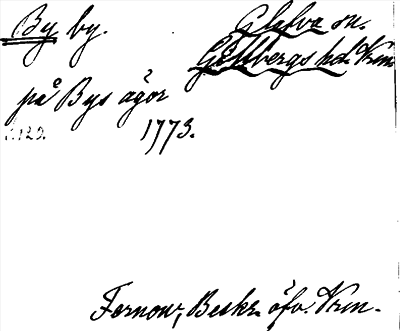 By by.
Glafva sn.
Gillbergs hd. Vrm.
på Bys ägor
s. 123. 1773.
Fernow, Beskr. öfv. Vrm.